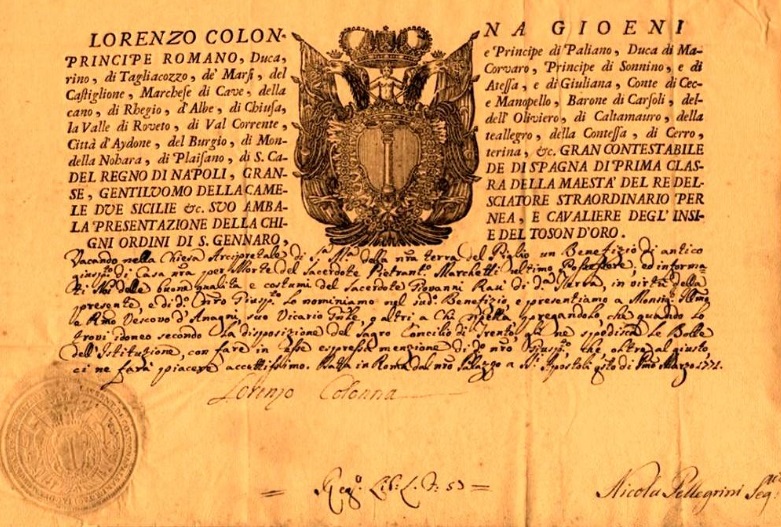 LORENZO COLON- NA GIOENI
PRINCIPE ROMANO, Duca, e Principe di Paliano, Duca di Ma-
rino, di Tagliacozzo, de' Marsi, del Corvaro, Principe di Sonnino, e di
Castiglione, Marchese di Cave, della Atessa, e di Giuliana, Conte di Cec-
cano, di Rhegio, d'Albe, di Chiusa, e Manopello, Barone di Carsoli, del-
la Valle di Roveto, di Val Corrente, dell'Oliviero, di Caltamauro, della
Città d'Aydone, del Burgio, di Mon- teallegro, della Contessa, di Cerro,
della Nohara, di Plaisano, di S. Ca- terina, &c. GRAN CONTESTABILE
DEL REGNO DI NAPOLI, GRAN- DE DI SPAGNA DI PRIMA CLAS-
SE, GENTILUOMO DELLA CAME- RA DELLA MAESTA' DEL RE DEL-
LE DUE SICILIE &c. SUO AMBA- SCIATORE STRAORDINARIO PER
LA PRESENTAZIONE DELLA CHI- NEA, E CAVALIERE DEGL' INSI-
GNI ORDINI DI S. GENNARO, E DEL TOSON D'ORO.
Vacando nella Chiesa Arcipretale di S.ta M.a della nra terra del Piglio un Benefizio di antico
di Casa nra per Morte del Sacerdote Marchetti ultimo Possessore, ed informa-
ti Noi delle buone qualità e costumi del Sacerdote Giovanni di da Terra, in virtù della
presente, e di do nro lo nominiamo nel sud. Benefizio e presentiamo a Monsig.
e Rmo Vescovo d'Anagni, suo Vicario o altri a Chi spetta pregandolo che quando lo
trovi idoneo secondo la disposizione del Sagro Concilio di Trento, ne spedisca le Bolle
dell'Istituzione, con fare in esse espressa menzione di do nro che oltre al giusto
ci ne farà piacere accettissimo. Data in Roma dal nro Palazzo a SS. Apostoli di Marzo 1771.
Lorenzo Colonna
= Reg.o Lib. 53 =
Nicola Pellegrini Seg.rio